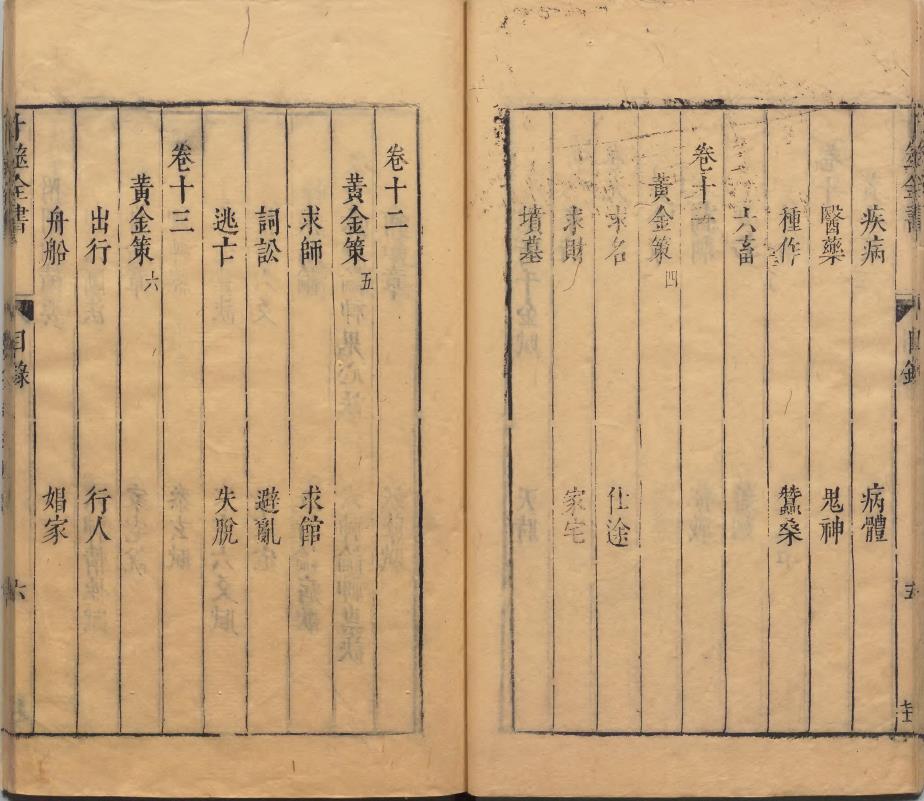 疾病 病體
醫藥 鬼神
種作 蠶桑
六畜
卷十一
黃金策 四
求名 仕途
求財 家宅
墳墓
卷十二
黃金策 五
求師 求館
詞訟 避亂
逃亡 失脫
卷十三
黃金策 六
出行 行人
舟船 娼家
卜筮全書 目錄 六